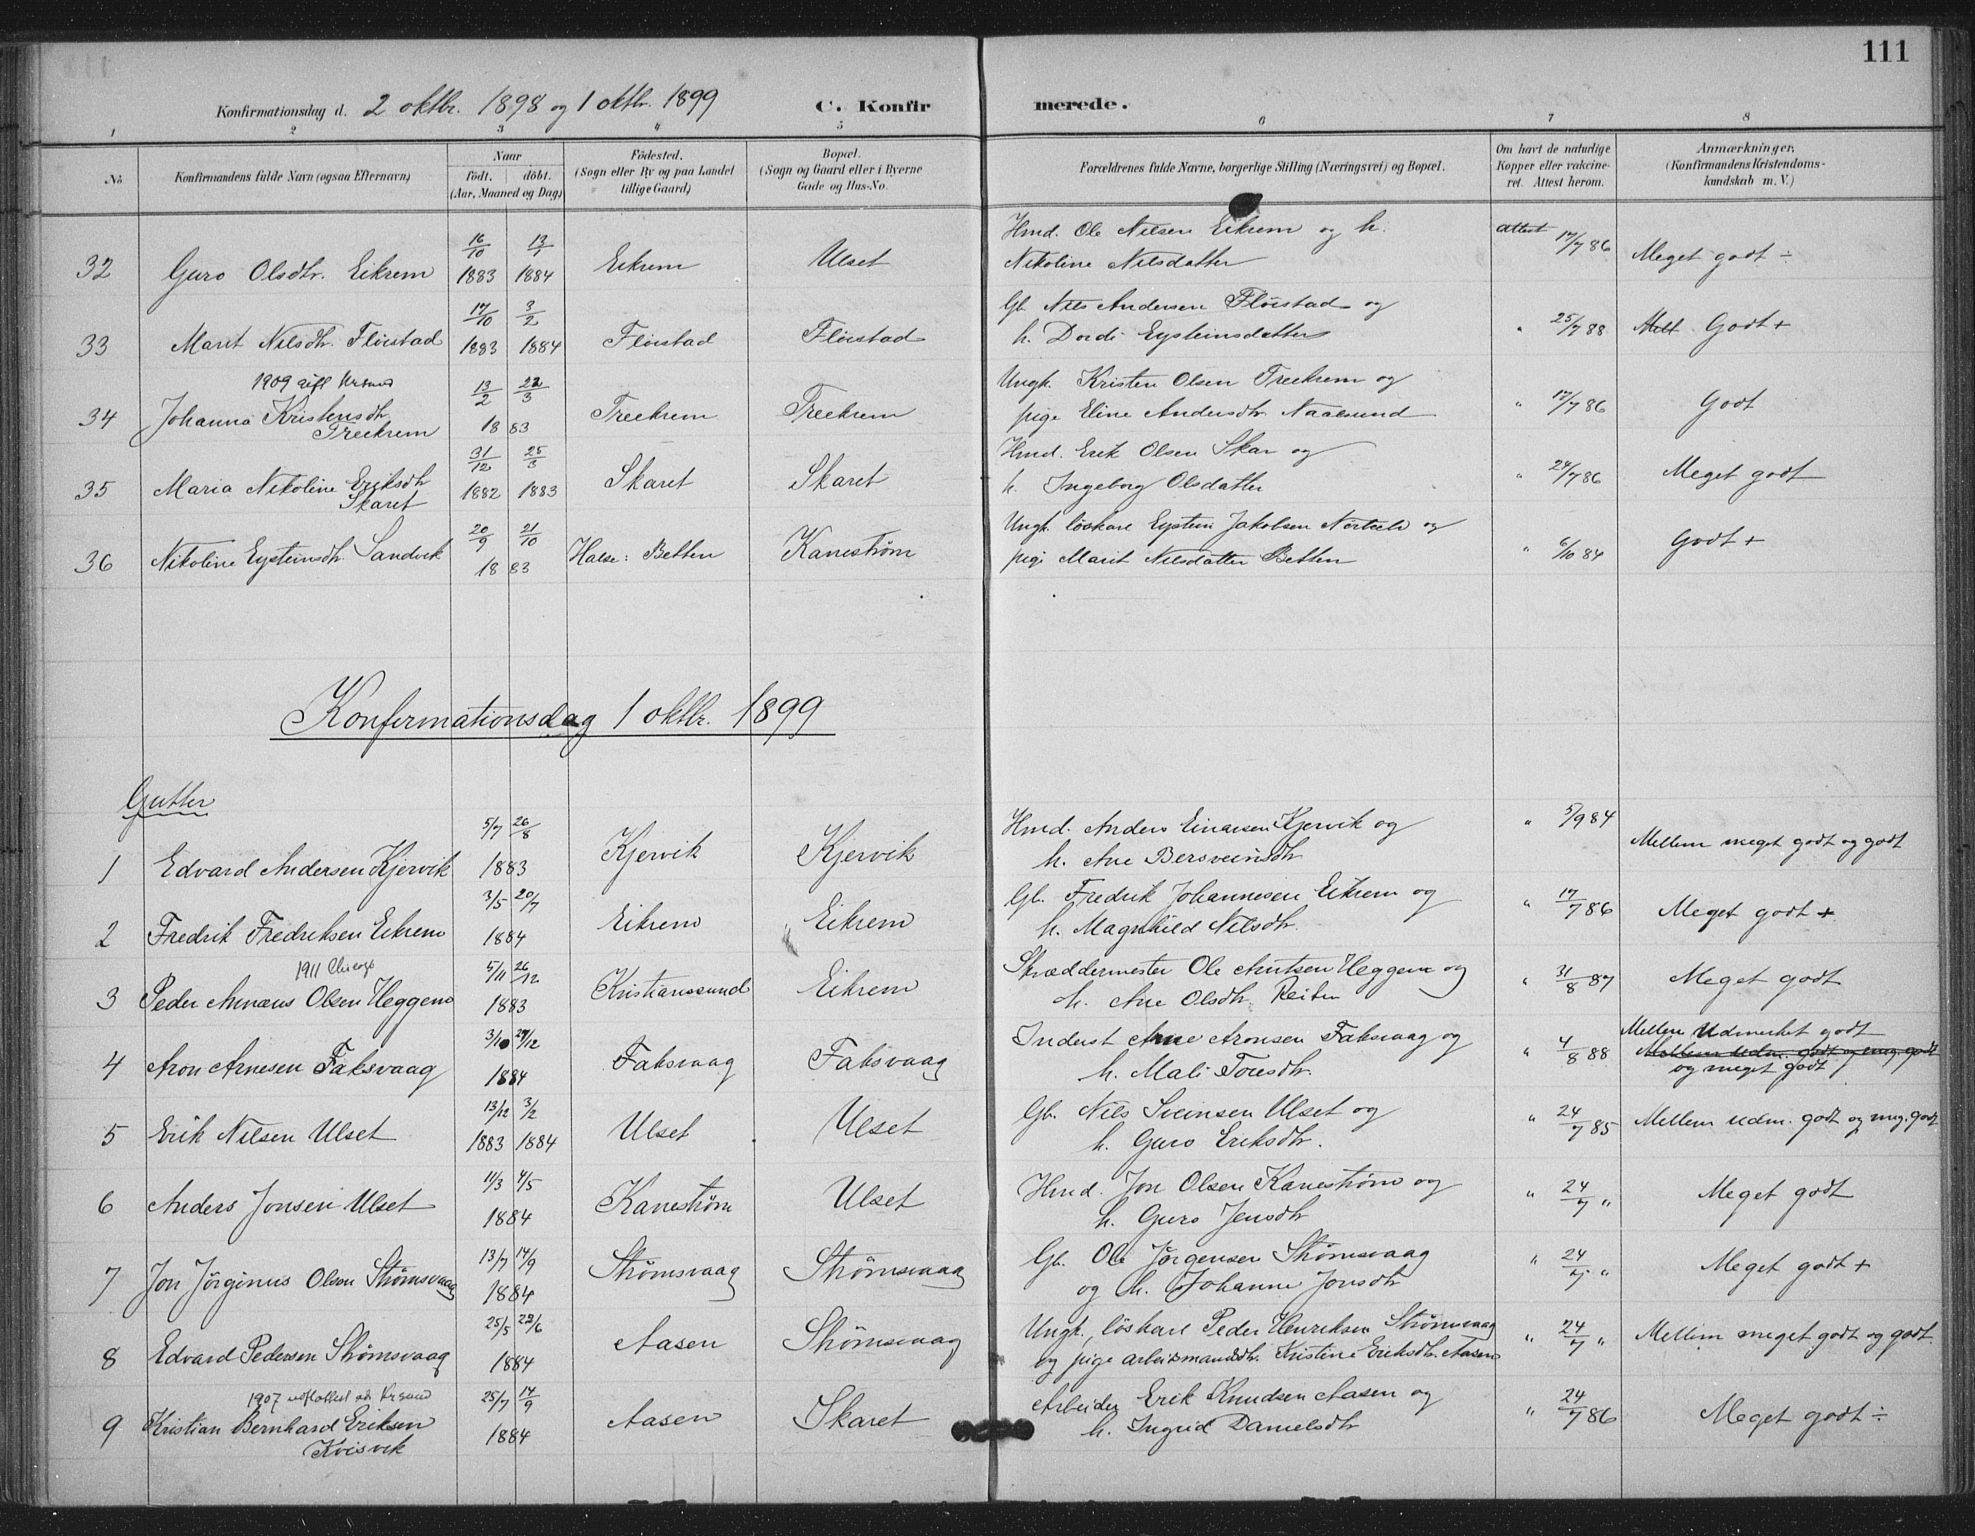 111
Konfirmationsdag d. 2 oktbr. 1898 og 1 oktbr. 1899 C. Konfirmerede.
1 2 3 4 5 6 7 8
No Konfirmandens fulde Navn (ogsaa Efternavn) Naar født. døbt. (Aar, Maaned og Dag) Fødested. (Sogn eller By og paa Landet tillige Gaard) Bopæl. (Sogn og Gaard eller i Byerne Gade og Hus-No. Forældrenes fulde Navne, borgerlige Stilling (Næringsvei) og Bopæl. Om havt de naturlige Kopper eller vakcineret. Attest herom. Anmærkninger. (Konfirmandens Kristendomskundskab m. V.)
32 Guro Olsdtr. Eikrem 16/10 1883 13/1 1884 Eikrem Ulset Hmd. Ole Nilsen Eikrem og h. Nikoline Nilsdatter attest 17/7 86 Meget godt ÷
33 Marit Nilsdtr. Fløistad 17/10 1883 3/2 1884 Fløistad Fløistad Gb. Nils Andersen Fløistad og h. Dordi Eysteinsdatter " 25/7 88 Godt +
1909 gift Krsund
34 Johanna Kristensdtr. Treekrem 13/2 22/3 1883 Treekrem Treekrem Ungk. Kristen Olsen Treekrem og pige Eline Andersdtr. Naalsund " 17/7 86 Godt
35 Maria Nikoline Eriksdtr Skaret 31/12 1882 25/3 1883 Skaret Skaret Hmd. Erik Olsen Skar og h. Ingeborg Olsdatter " 24/7 86 Meget godt
36 Nikoline Eysteinsdtr. Sandvik 20/9 21/10 1883 Halse: Betten Kanestrøm Ungk. løskarl Eystein Jakobsen og pige Marit Nilsdatter Betten " 6/10 84 Godt +
Konfirmationsdag 1 oktbr. 1899
Gutter
1 Edvard Andersen Kjervik 5/7 26/8 1883 Kjervik Kjervik Hmd. Anders Einarsen Kjervik og h. Ane Bersveinsdtr " 5/9 84 Mellem meget godt og godt
2 Fredrik Fredriksen Eikrem 3/5 20/7 1884 Eikrem Eikrem Gb. Fredrik Johannesen Eikrem og h. Magnhild Nilsdtr. " 17/7 86 Meget godt +
1911 Chicago
3 Peder Olsen Heggem 5/11 26/12 1883 Kristianssund Eikrem Skræddermester Ole Knutsen Heggem og h. Ane Olsdtr. Reiten " 31/8 87 Meget godt
4 Aron Arnesen Faksvaag 3/10 27/12 1884 Faksvaag Faksvaag Inderst Arne Aronsen Faksvaag og h. Mali Toresdtr. " 4/8 88 Mellem udmerket godt
Mellem udm. godt og meg. godt
og meget godt
5 Erik Nilsen Ulset 13/12 1883 3/2 1884 Ulset Ulset Gb. Nils Sveinsen Ulset og h. Guro Eriksdtr. " 24/7 85 Mellem udm. godt og meg. godt
6 Anders Jonsen Ulset 11/3 4/5 1884 Kanestrøm Ulset Hmd. Jon Olsen Kanestrøm og h. Guro Jensdtr " 24/7 " Meget godt
7 Jon Jørginus Olsen Strømsvaag 13/7 14/9 1884 Strømsvaag Strømsvaag Gb. Ole Jørgensen Strømsvaag og h. Johanne Jonsdtr " 24/7 " Meget godt +
8 Edvard Pedersen Strømsvaag 25/5 22/6 1884 Aasen Strømsvaag Ungk. løskarl Peder Henriksen Strømsvaag og pige arbeidsmandsdtr. Kristine Eriksdtr. Aasen " 24/7 " Mellem meget godt og godt
1907 udflottet Krsund
9 Kristian Bernhard Eriksen Kvisvik 25/7 14/9 1884 Aasen Skaret Arbeider Erik Knudsen Aasen og h. Ingrid Danielsdtr " 24/7 86 Meget godt ÷